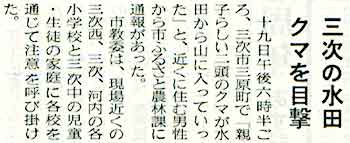 三次の水田
クマを目撃
十九日午後六時半ご
ろ、三次市三原町で「親
子らしい二頭のクマが水
田から山に入っていっ
た」と、近くに住む男性
から市ふるさと農林課に
通報があった。
市教委は、現場近くの
三次西、三次、河内の各
小学校と三次中の児童
・生徒の家庭に各校を
通じて注意を呼び掛け
た。